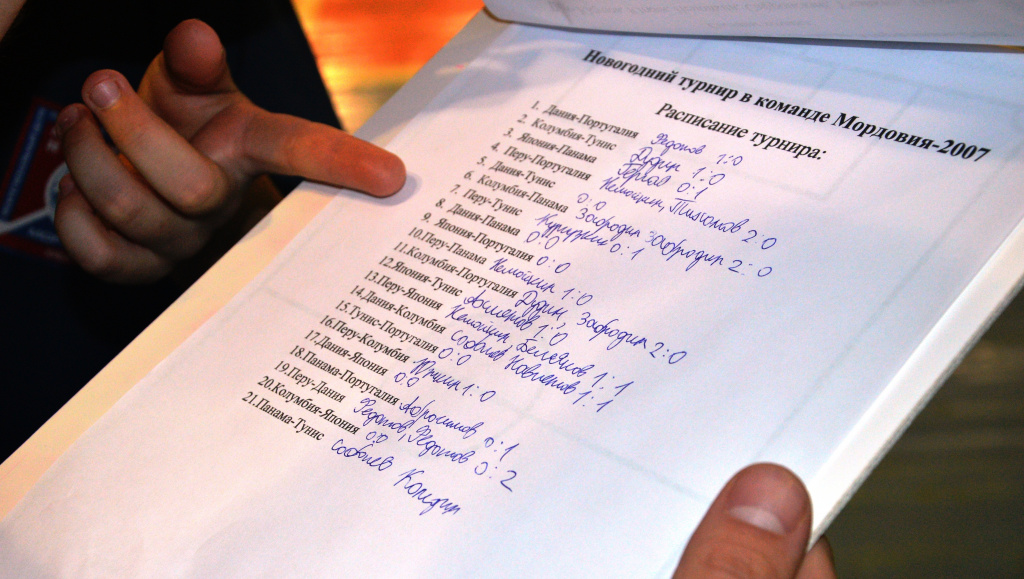 Новогодний турнир в команде Мордовия-2007
Расписание турнира:
1. Дания-Португалия Федотов 1:0
2. Колумбия-Тунис Дудин 1:0
3. Япония-Панама 0:1
4. Перу-Португалия Тихонов 2:0
5. Дания-Тунис 0:0
6. Колумбия-Панама Забродин Забродин 2:0
7. Перу-Тунис 0:1
8. Дания-Панама 0:0
9. Япония-Португалия 0:0
10.Перу-Панама 1:0
11.Колумбия-Португалия Дудин, Забродин 2:0
12.Япония-Тунис 1:0
13.Перу-Япония 1:1
14.Дания-Колумбия 1:1
15.Тунис-Португалия 0:0
16.Перу-Колумбия Юркин 1:0
17.Дания-Япония 0:0
18.Панама-Португалия Абросимов 0:1
19.Перу-Дания Федотов, Федотов 0:2
20.Колумбия-Япония 0:0
21.Панама-Тунис